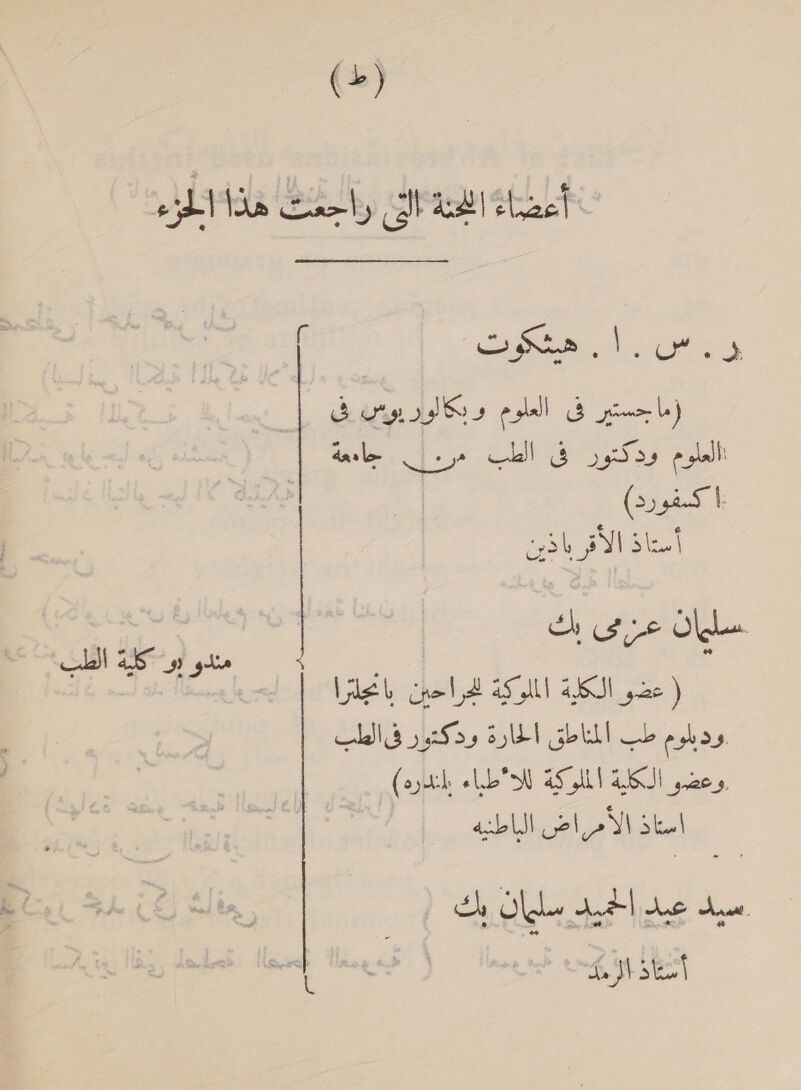 (ط)
أعضاء اللجنة التى راجعت هذا الجزء
ر . س . ا . هيثكوت
(ماجستير فى العلوم وبكالوريوس فى
العلوم ودكتور فى الطب من جامعة
اكسفورد)
أستاذ الأقرباذين
سليمان عزمى بك
(عضو الكلية الملوكية للجراحين بانجلترا
ودبلوم طب المناطق الحارة ودكتور فى الطب
وعضو الكلية الملوكية للأطباء بلندره)
استاذ الأمراض الباطنيه
سيد عبد الحميد سليمان بك
أستاذ الرمد
مندوبو كلية الطب